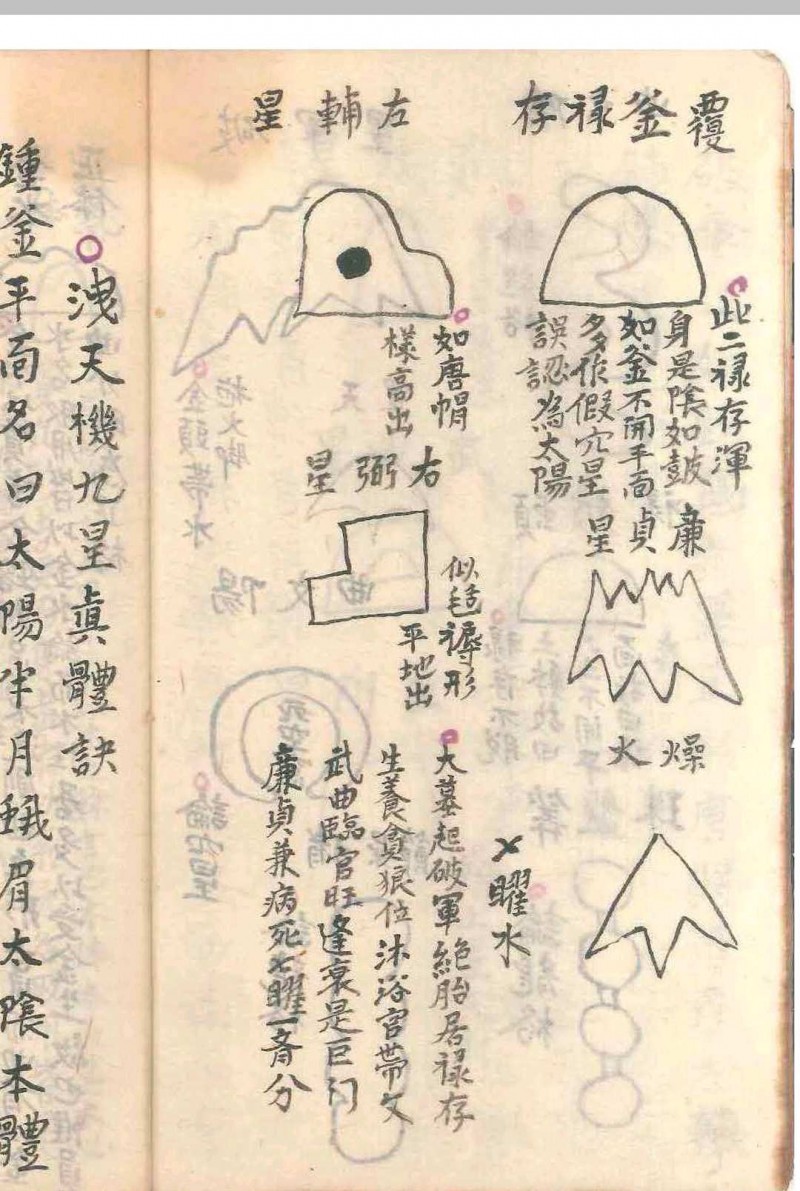 覆釜祿存
此二祿存渾
身是陰如鼓
如釜不開平面
多作假穴星
誤認為太陽
廉貞星
燥火
左輔星
如唐帽
樣高出
右弼星
似毡褥形
平地出
七曜水
大墓起破軍絕胎居祿存
生養貪狼位沐浴宮帶文
武曲臨官旺逢衰是巨門
廉貞兼病死七曜一齊分
洩天機九星眞體訣
鍾釜平面名曰太陽半月蛾眉太陰本體